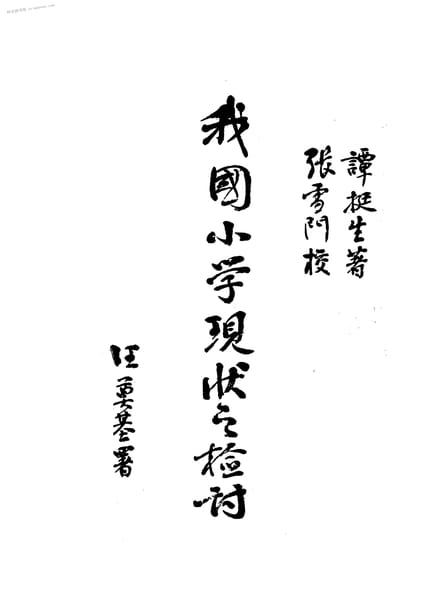 譚挺生著
張雪門校
我國小学現状之檢討
汪奠基署